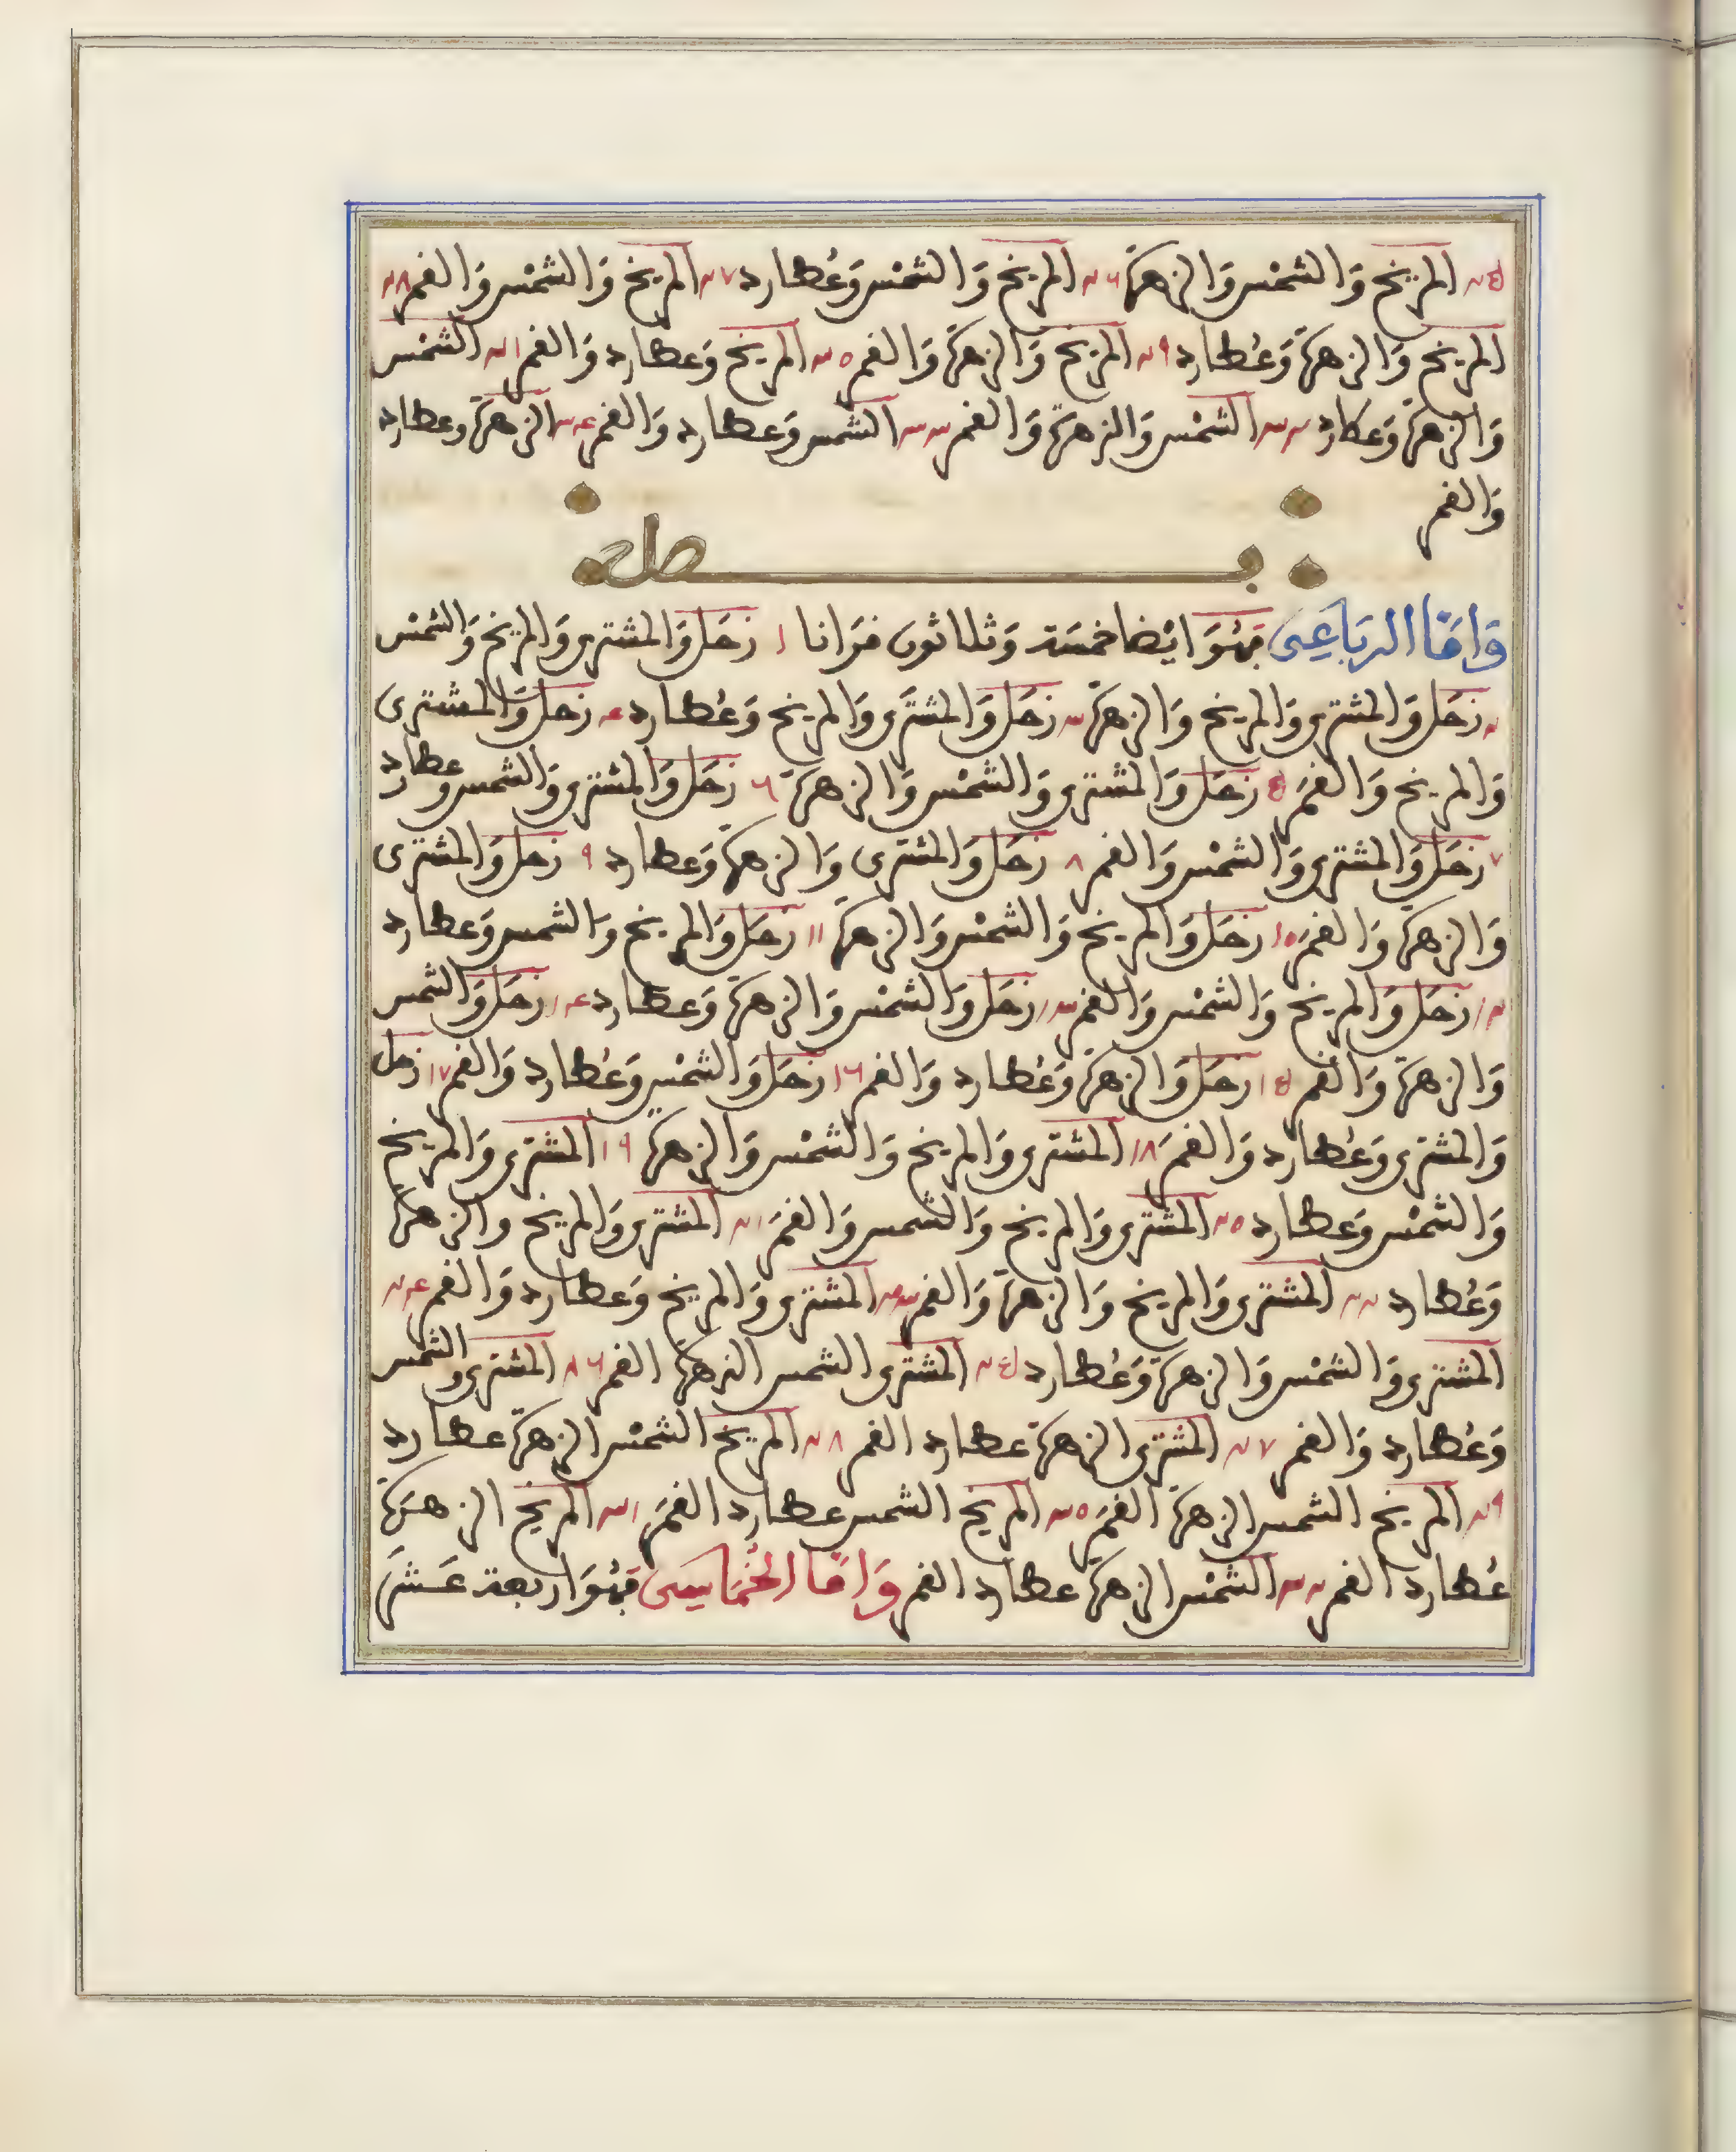 ٢٥ المريخ وَالشمْس وَالزهرَة ٢٦ المريخ وَالشمْس وَعُطارد ٢٧ المريخ وَالشمْس وَالقمر ٢٨
المريخ وَالزهرَة وَعُطارد ٢٩ المريخ وَالزهرَة وَالقمر ٣٠ المريخ وَعطارد وَالقمر ٣١ الشمْس
وَالزهرَة وَعطارد ٣٢ الشمْس وَالزهرَة وَالقمر ٣٣ الشمس وَعطارد وَالقمر ٣٤ الزهرَة وعطارد
وَالقمر
فصل
وَامَّا الربَاعِى فهُوَ ايْضا خمسَة وَثلاثون قرَانا ١ زحَل وَالمشترى وَالمريخ وَالشمْس
٢ زحَل وَالمشترى وَالمريخ وَالزهرَة ٣ زحَل وَالمشترَى وَالمريخ وَعُطارد ٤ زحَل وَالمشترى
وَالمريخ وَالقمَر ٥ زحَل وَالمشترى وَالشمْس وَالزهرَة ٦ زحَل وَالمشترى وَالشمس وعطارد
٧ زحَل وَالمشترى وَالشمْس وَالقمر ٨ زحَل وَالمشترى وَالزهرَة وَعطارد ٩ زحل وَالمشترى
وَالزهرَة وَالقمَر ١٠ زحَل وَالمريخ وَالشمْس وَالزهرَة ١١ زحَل وَالمريخ وَالشمس وَعطارد
١٢ زحَل وَالمريخ وَالشمْس وَالقمر ١٣ زحَل وَالشمْس وَالزهرَة وَعطارد ١٤ زحَل وَالشمس
وَالزهرَة وَالقمر ١٥ زحَل وَالزهرَة وَعُطارد وَالقمر ١٦ زحَل وَالشمْس وَعُطارد وَالقمر ١٧ زحل
وَالمشترى وَعُطارد وَالقمَر ١٨ المشترى وَالمريخ وَالشمْس وَالزهرَة ١٩ المشترى وَالمريخ
وَالشمْس وَعطارد ٢٠ المشترى وَالمريخ وَالشمس وَالقمَر ٢١ المشترى وَالمريخ والزهرَة
وَعُطارد ٢٢ المشترى وَالمريخ وَالزهرَة وَالقمر ٢٣ المشترى وَالمريخ وَعطارد وَالقمر ٢٤
المشترى وَالشمْس وَالزهرَة وَعُطارد ٢٥ المشترى الشمس الزهرَة القمر ٢٦ المشترى والشمس
وَعُطارد وَالقمر ٢٧ المشترى الزهرَة عطارد القمر ٢٨ المريخ الشمْس الزهرَة عطارد
٢٩ المريخ الشمس الزهرَة القمَر ٣٠ المريخ الشمس عطارد القمَر ٣١ المريخ الزهَرَة
عُطارد القمر ٣٢ الشمْس الزهرَة عطارد القمر وَامَّا الخُمَاسِى فهُوَ اربعة عَشَر